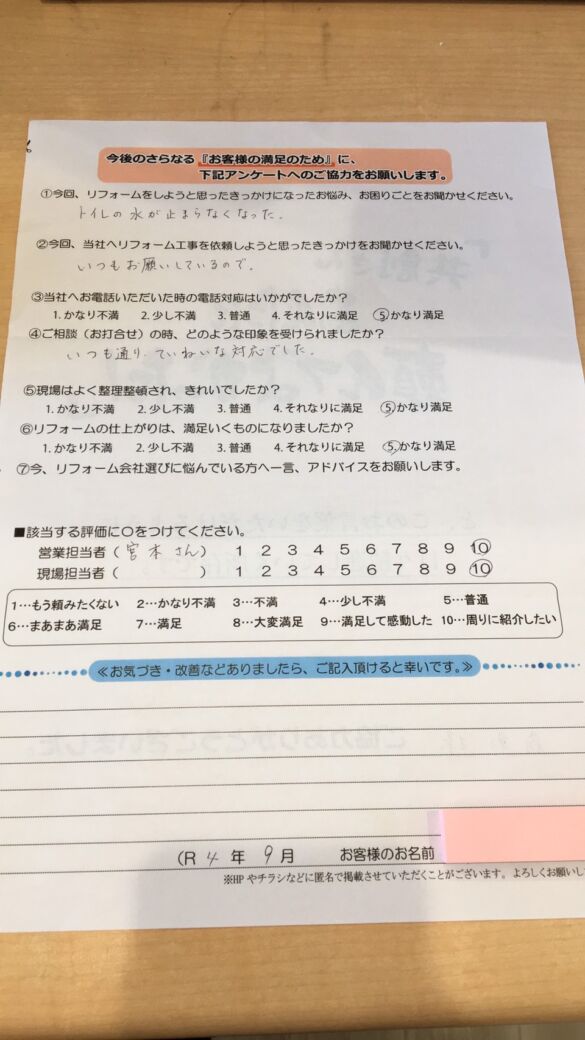 今後のさらなる『お客様の満足のため』に、
下記アンケートへのご協力をお願いします。
①今回、リフォームをしようと思ったきっかけになったお悩み、お困りごとをお聞かせください。
トイレの水が止まらなくなった.
②今回、当社へリフォーム工事を依頼しようと思ったきっかけをお聞かせください。
いつもお願いしているので.
③当社へお電話いただいた時の電話対応はいかがでしたか?
1.かなり不満 2.少し不満 3.普通 4.それなりに満足 5.かなり満足
④ご相談(お打合せ)の時、どのような印象を受けられましたか?
いつも通り.ていねいな対応でした.
⑤現場はよく整理整頓され、きれいでしたか?
1.かなり不満 2.少し不満 3.普通 4.それなりに満足 5.かなり満足
⑥リフォームの仕上がりは、満足いくものになりましたか?
1.かなり不満 2.少し不満 3.普通 4.それなりに満足 5.かなり満足
⑦今、リフォーム会社選びに悩んでいる方へ一言、アドバイスをお願いします。
■該当する評価に○をつけてください。
営業担当者(宮本さん) 1 2 3 4 5 6 7 8 9 10
現場担当者( ) 1 2 3 4 5 6 7 8 9 10
1…もう頼みたくない 2…かなり不満 3…不満 4…少し不満 5…普通
6…まあまあ満足 7…満足 8…大変満足 9…満足して感動した 10…周りに紹介したい
≪お気づき・改善などありましたら、ご記入頂けると幸いです。≫
(R 4 年 9 月 お客様のお名前
※HPやチラシなどに匿名で掲載させていただくことがございます。よろしくお願いし